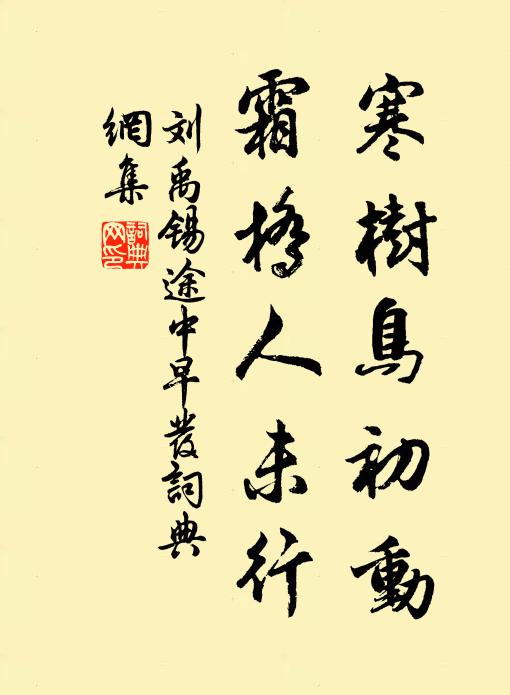 寒樹鳥初動
霜橋人未行
刘禹锡途中早發詞典
網集
詞典
网印